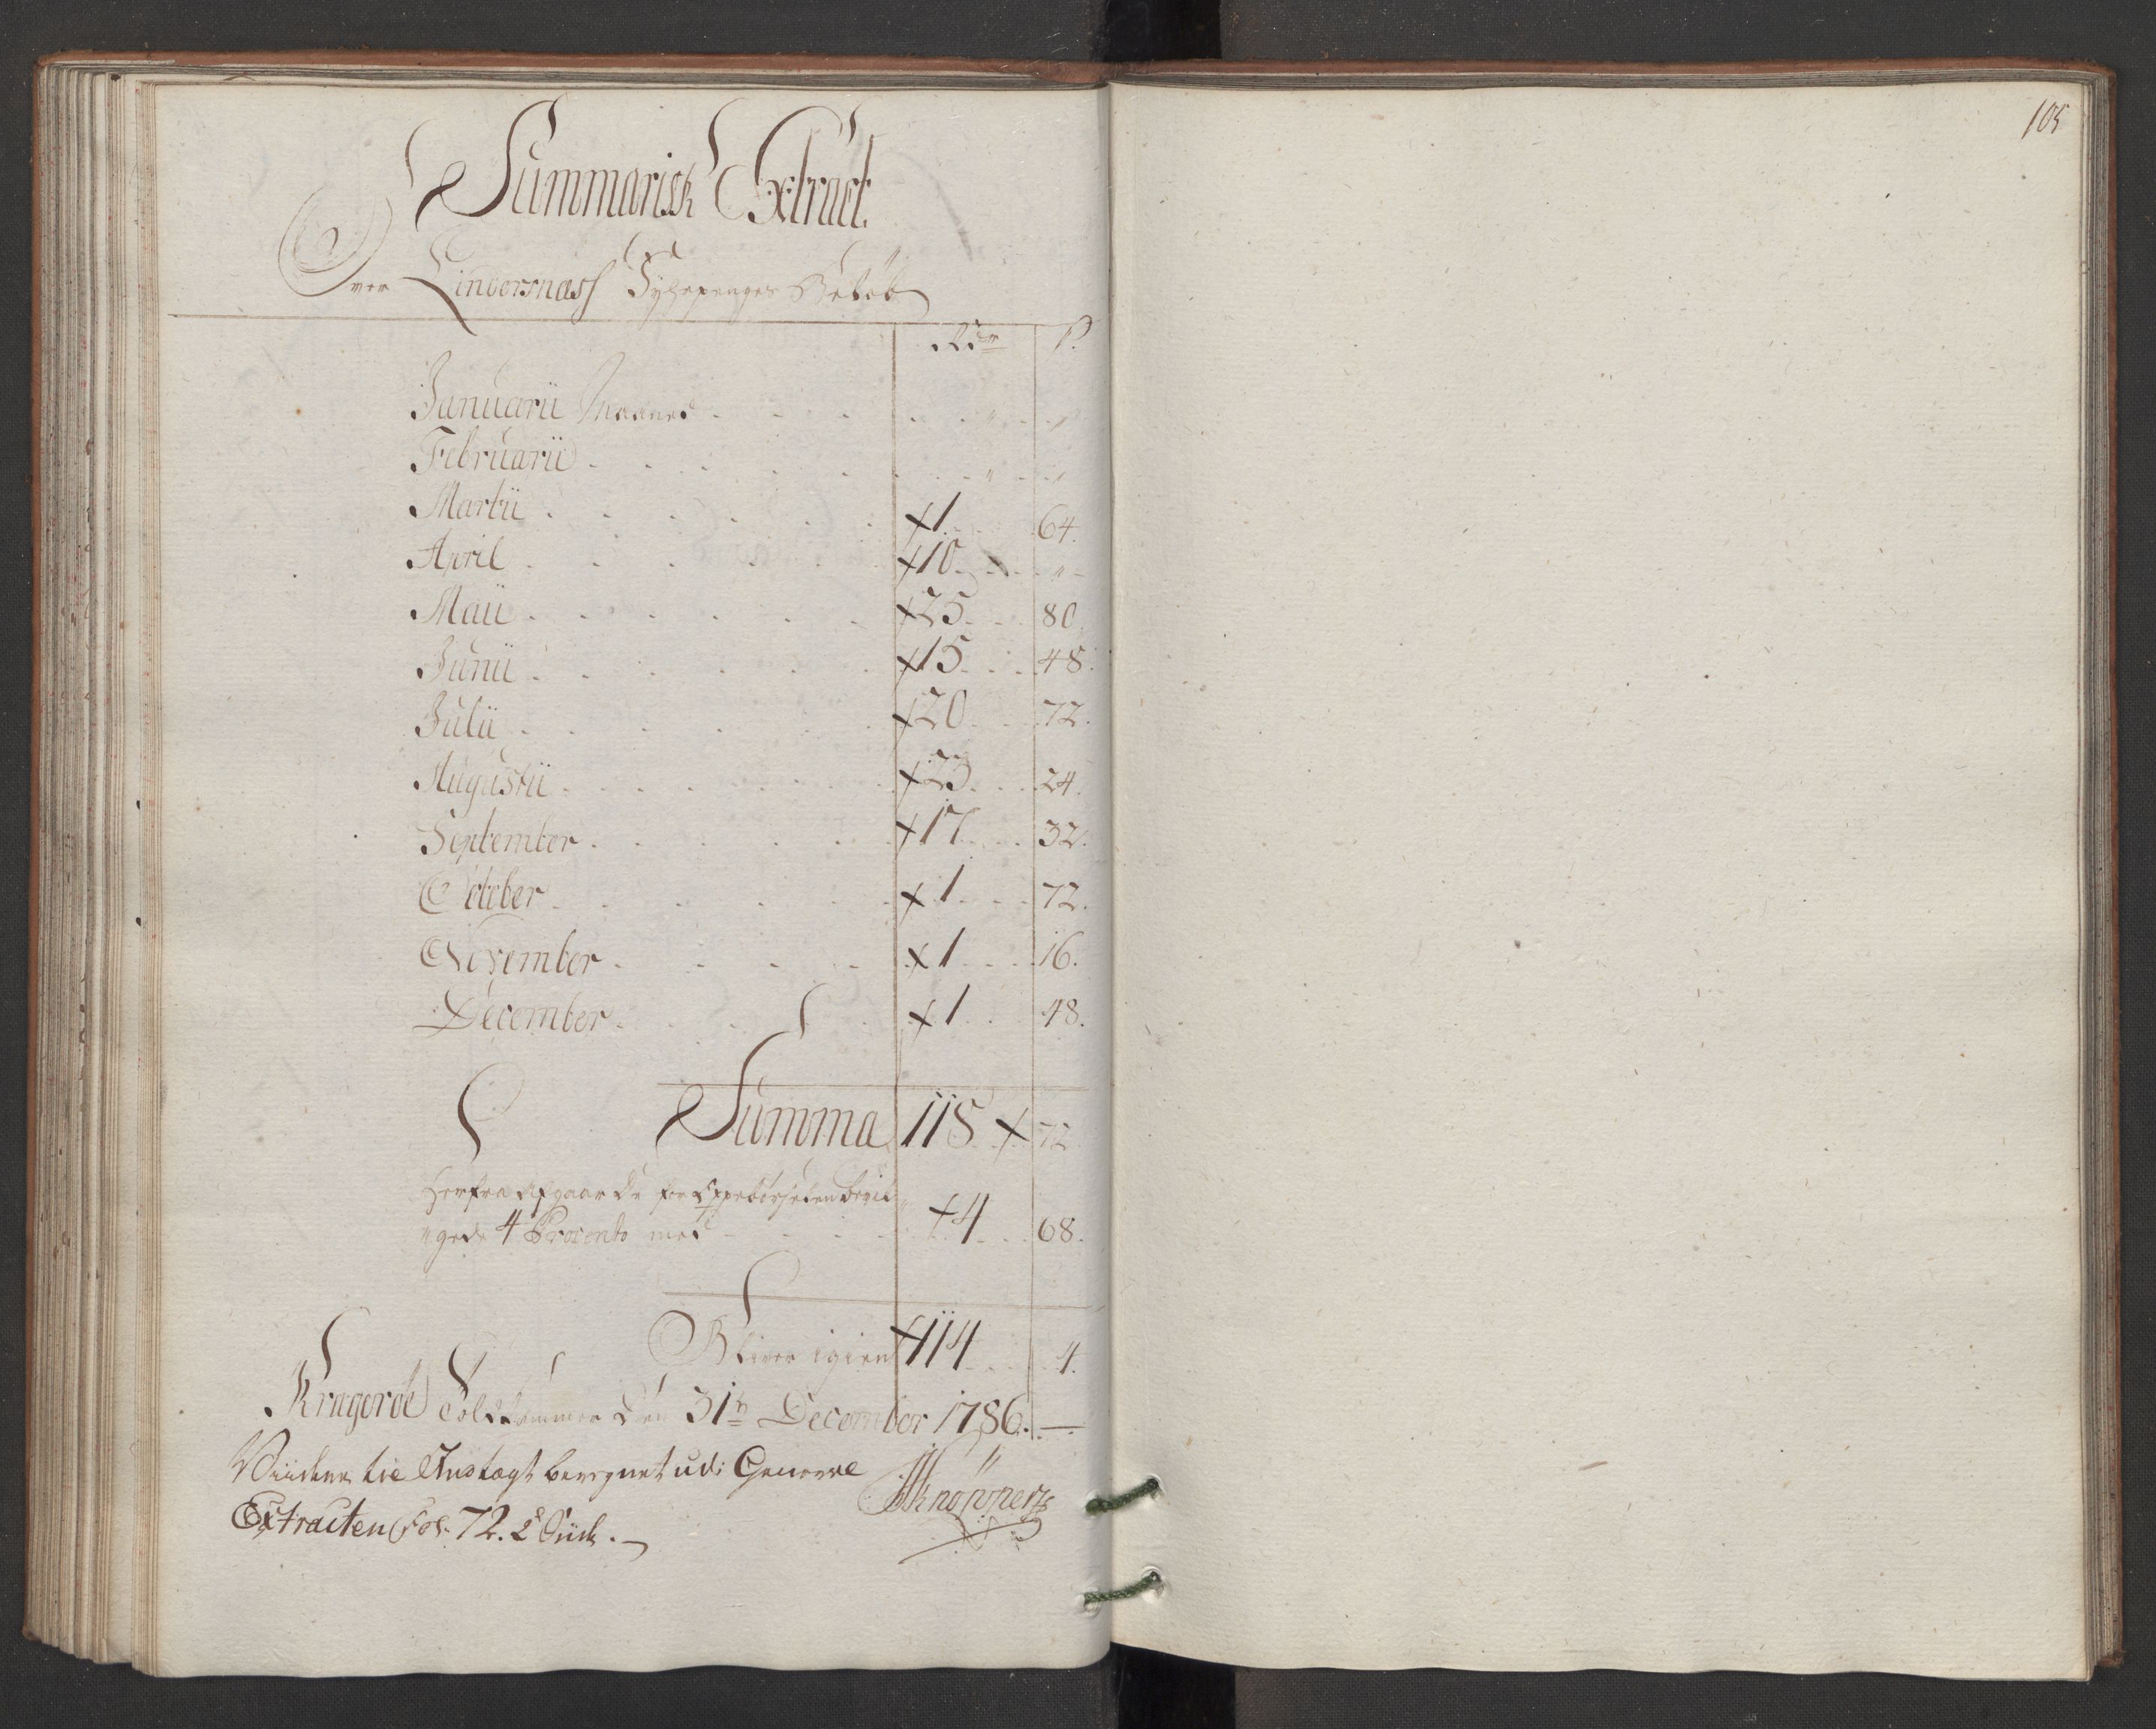 105
Summarisk Extract.
Over Lindersnæss Fyhrpenges Beløb
Rdr ß.
Januarii Maaned . . . . . „ . . „
Februarii . . . . . . . „ . . „
Martii . . . . . . 1. . . 64.
April . . . . . . 10. . . „ -
Maii . . . . . . 25. . . 80.
Junii . . . . . . 15. . . 48.
Julii . . . . . . 20 . . . 72.
Augustii . . . . . . 23. . . 24.
September . . . . . . 17. . . 32.
October . . . . . 1. . . 72.
November . . . . 1. . . 16.
December . . . . 1. . . 48.
Summa 118. 72
Herfra afgaar de for Oppebørselen bevil-
gede 4 Procento med . . . . 4. . . 68.
Bliver igien 114. . . 4.
Kragerøe Toldkammer den 31te December 1786. —
til Indtægt beregnet udi Generale
Extracten Fol. 72. 2d Siide. —
Knøpper